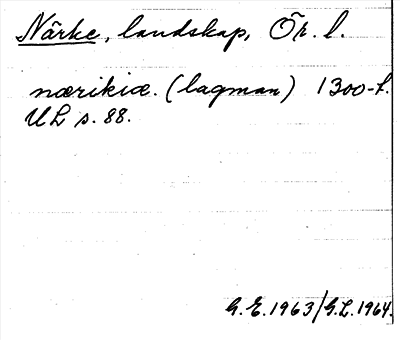 Närke, landskap, Ör. l.
nærikiæ. (lagman) 1300-t.
UL s. 88.
G.E. 1963/G.L. 1964.